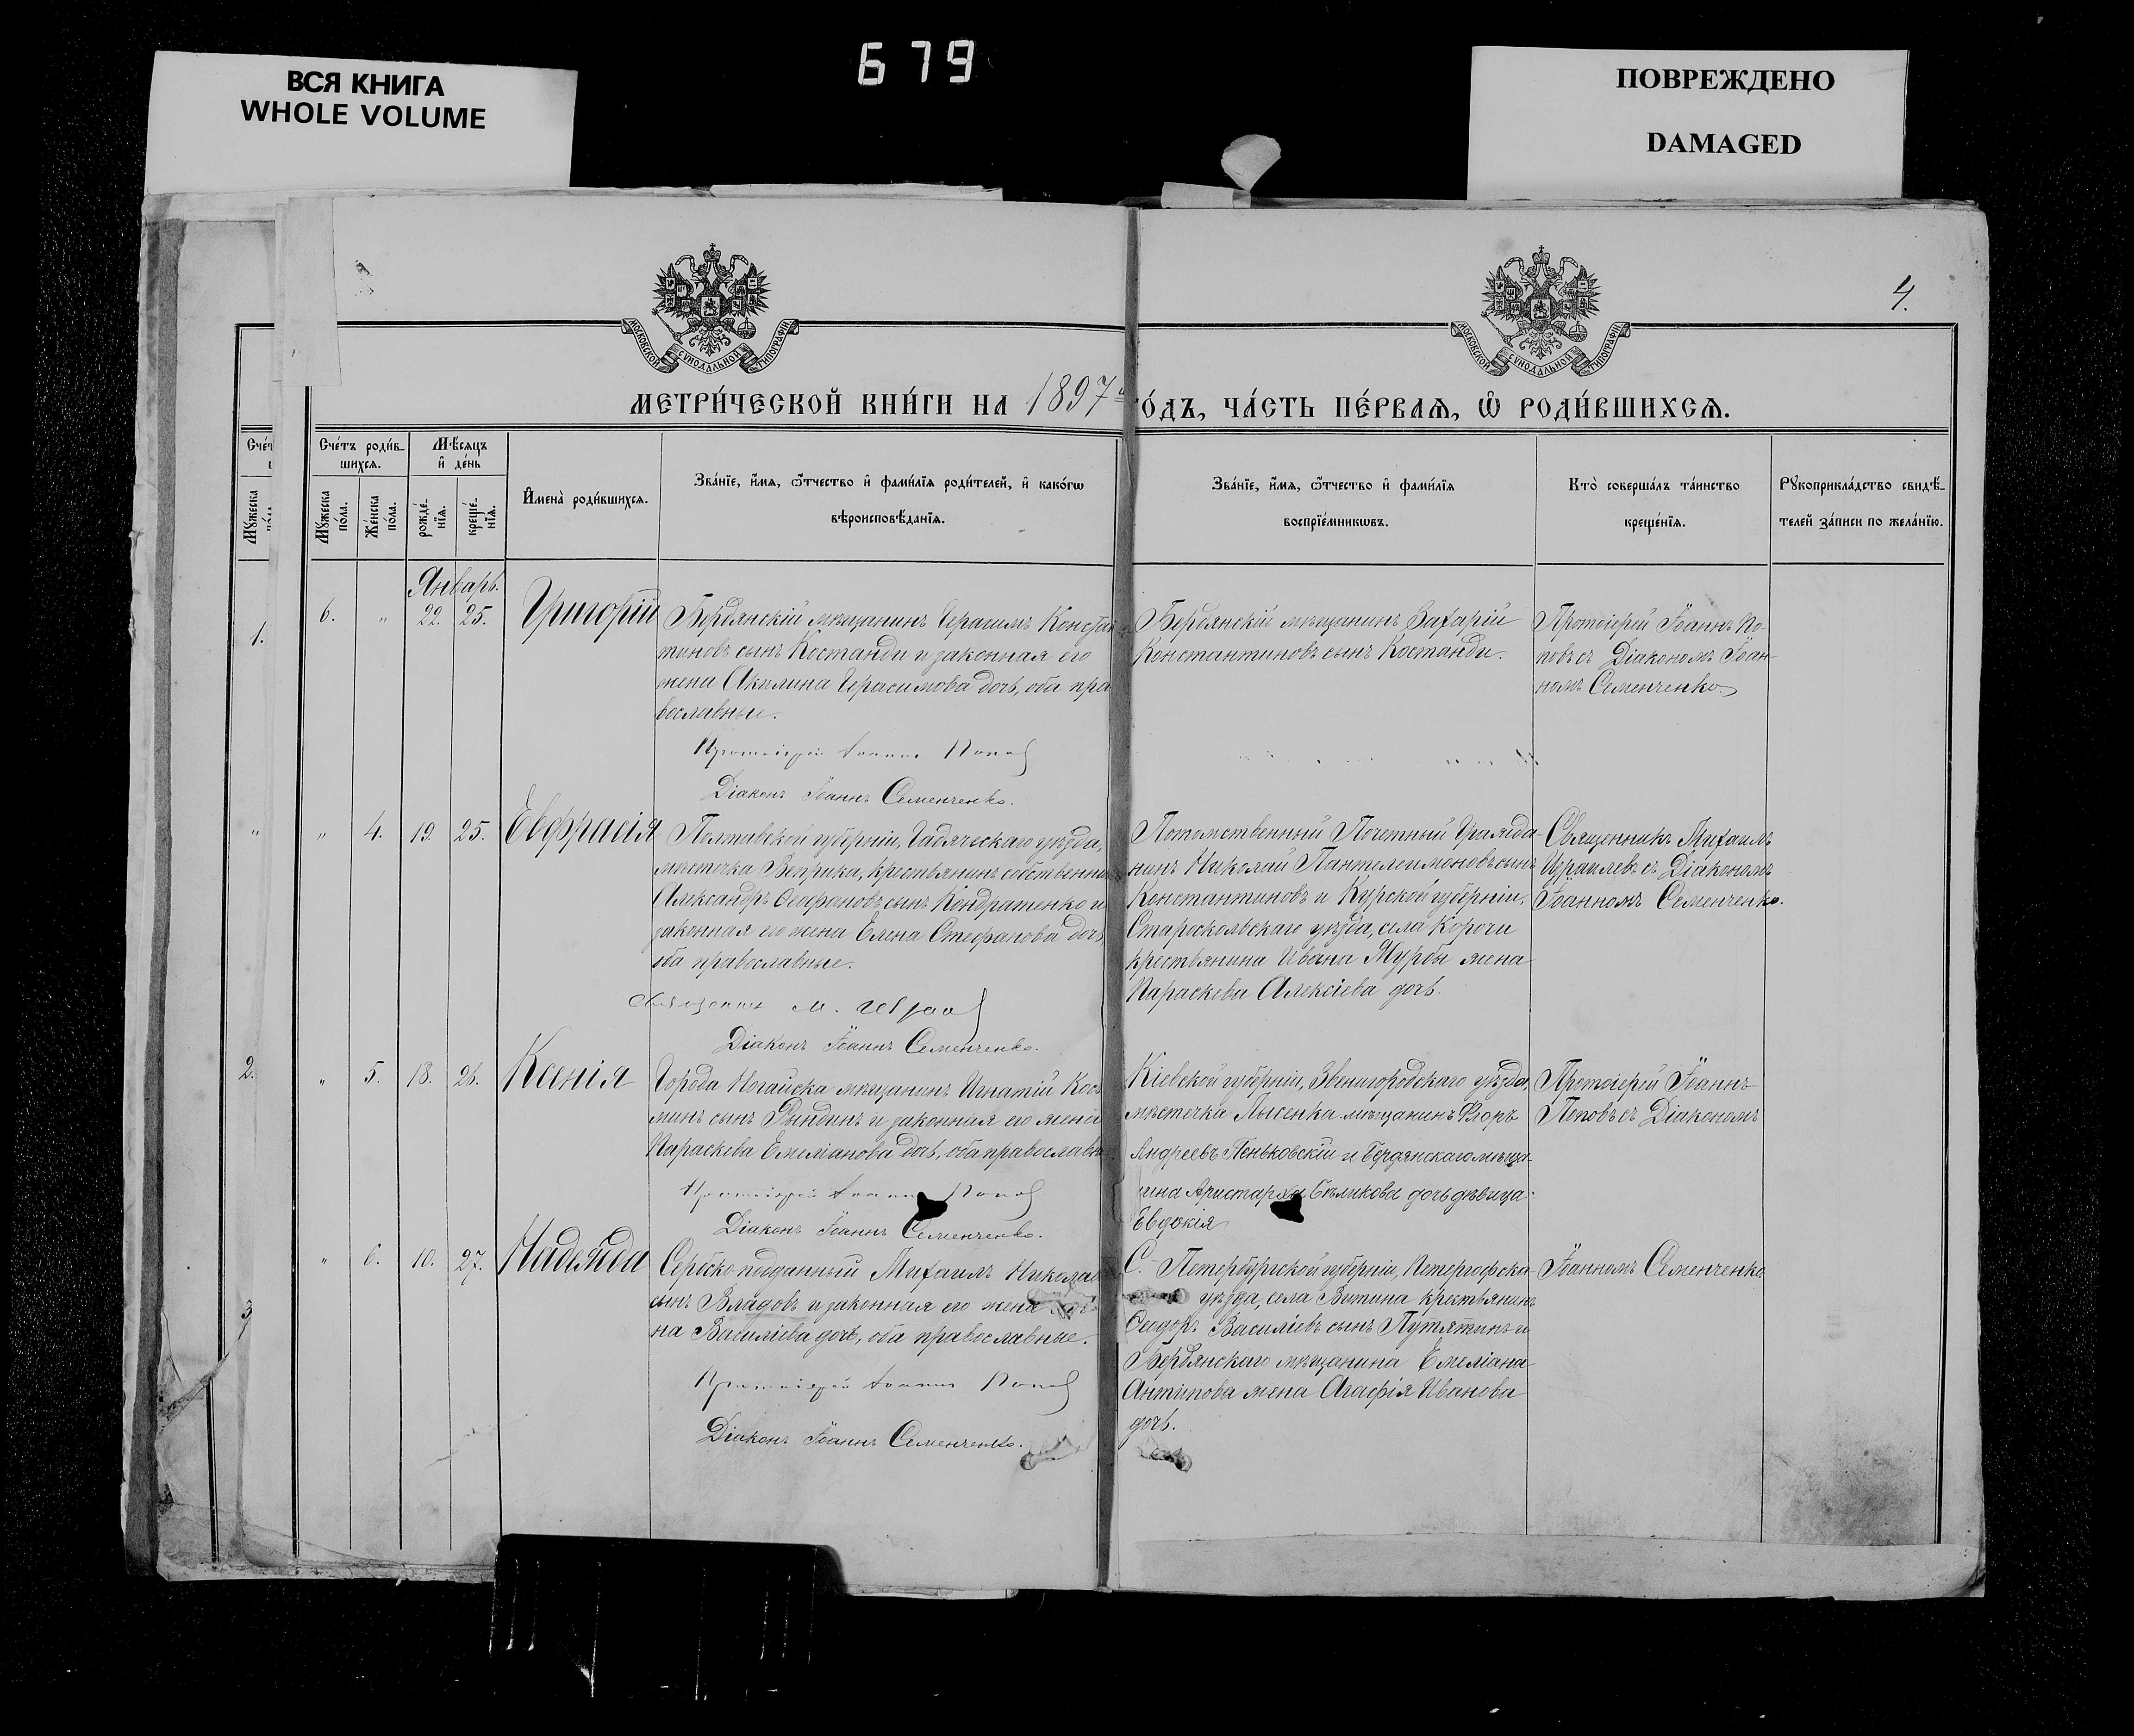 ВСЯ КНИГА
WHOLE VOLUME
679
ПОВРЕЖДЕНО
DAMAGED
4.
МОСКОВСКОЙ СѴНОДАЛЬНОЙ ТИПОГРАФІИ
МОСКОВСКОЙ СѴНОДАЛЬНОЙ ТИПОГРАФІИ
МЕТРИ́ЧЕСКОЙ КНИ́ГИ НА 1897 го́дъ, ЧА́СТЬ ПЕ́РВАѦ, Ѽ РОДИ́ВШИХСѦ.
Сче́тъ роди́в-
шихсѧ.
Мѣ́сѧцъ
и҆ де́нь
Мꙋ́жеска по́ла.
Же́нска по́ла.
рожде́-нїѧ.
креще́-нїѧ.
И҆мена̀ роди́вшихсѧ.
Зва́нїе, и҆́мѧ, ѻ҆́тчество и҆ фами́лїѧ роди́телей, и҆ како́гѡ
вѣроисповѣ́данїѧ.
Зва́нїе, и҆́мѧ, ѻ҆́тчество и҆ фами́лїѧ
воспрїе́мникѡвъ.
Кто̀ соверша́лъ та́инство
креще́нїѧ.
Рꙋкоприкла́дство свидѣ́-
телей за́писи по жела́нїю.
Январь.
6. " 22. 25. Григорій
Бердянскій мѣщанинъ Герасимъ Констан
тиновъ сынъ Костанди и законная его
жена Акилина Герасимова дочь, оба пра
вославные.
Протоіерей Іоаннъ Попов
Діаконъ Іоаннъ Семенченко.
Бердянскій мѣщанинъ Захарій
Константиновъ сынъ Костанди.
Протоіерей Іоаннъ По-
повъ съ Діакономъ Іоан-
номъ Семенченко
" 4. 19. 25. Евфрасія
Полтавской губерніи, Гадячскаго уѣзда,
мѣстечка Веприка, крестьянинъ собственни
Александръ Ѳеофановъ сынъ Кондратенко и
законная его жена Елена Стефанова дочь
оба православные.
Священник М.
Діаконъ Іоаннъ Семенченко.
Потомственный Почетный Гражда-
нинъ Николай Пантелеимоновъ сынъ
Константиновъ и Курской губерніи,
Старооскольскаго уѣзда, села Корочи
крестьянина Ивана Мурбы жена
Параскева Алексіева дочь.
Священникъ Михаилъ
Израилевъ съ Діакономъ
Іоанномъ Семенченко.
" 5. 18. 26. Ксенія
Города Ногайска мѣщанинъ Игнатій Кось
минъ сынъ Рындинъ и законная его жена
Параскева Емеліанова дочь, оба православн
Протоіерей Іоаннъ Попов
Діаконъ Іоаннъ Семенченко.
Кіевской губерніи, Звенигородскаго уѣзда,
мѣстечка Лысенка мѣщанинъ Флоръ
Андреевъ Пеньковскій и Бердянскаго мѣща-
нина Аристарха Бѣликова дочь дѣвица
Евдокія
Протоіерей Іоаннъ
Поповъ съ Діакономъ
Іоанномъ Семенченко.
" 6. 10. 27. Надежда
Сербско-подданный Михаилъ Николаев
сынъ Владовъ и законная его жена
на Василіева дочь, оба православные.
Протоіерей Іоаннъ Попов
Діаконъ Іоаннъ Семенченко.
С.-Петербургской губерніи, Петергофска-
уѣзда, села Витина крестьянинъ
Сидоръ Василіевъ сынъ Путятинъ и
Бердянскаго мѣщанина Емеліана
Антипова жена Агафія Иванова
дочь.
1.
"
2.
3